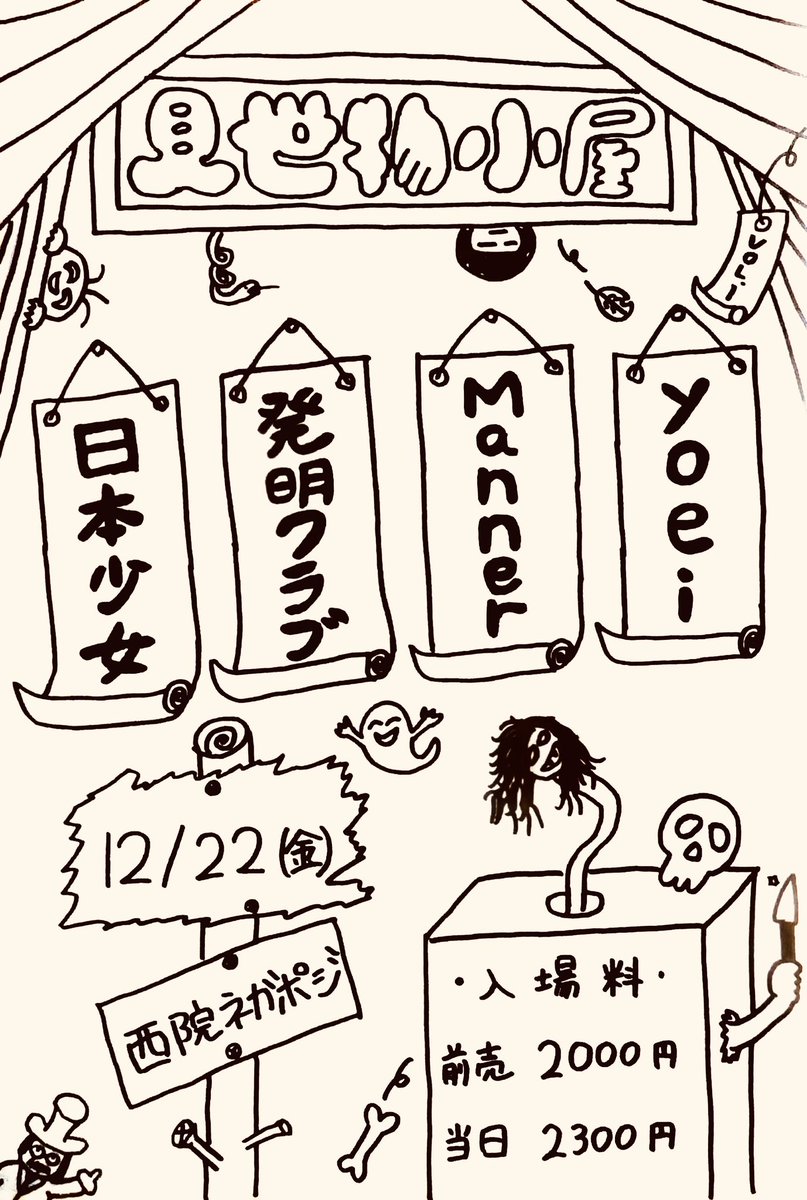 見世物小屋
VOL.i
日本少女
発明クラブ
Manner
yoei
12/22(金)
西院ネガポジ
・入場料・
前売 2000円
当日 2300円